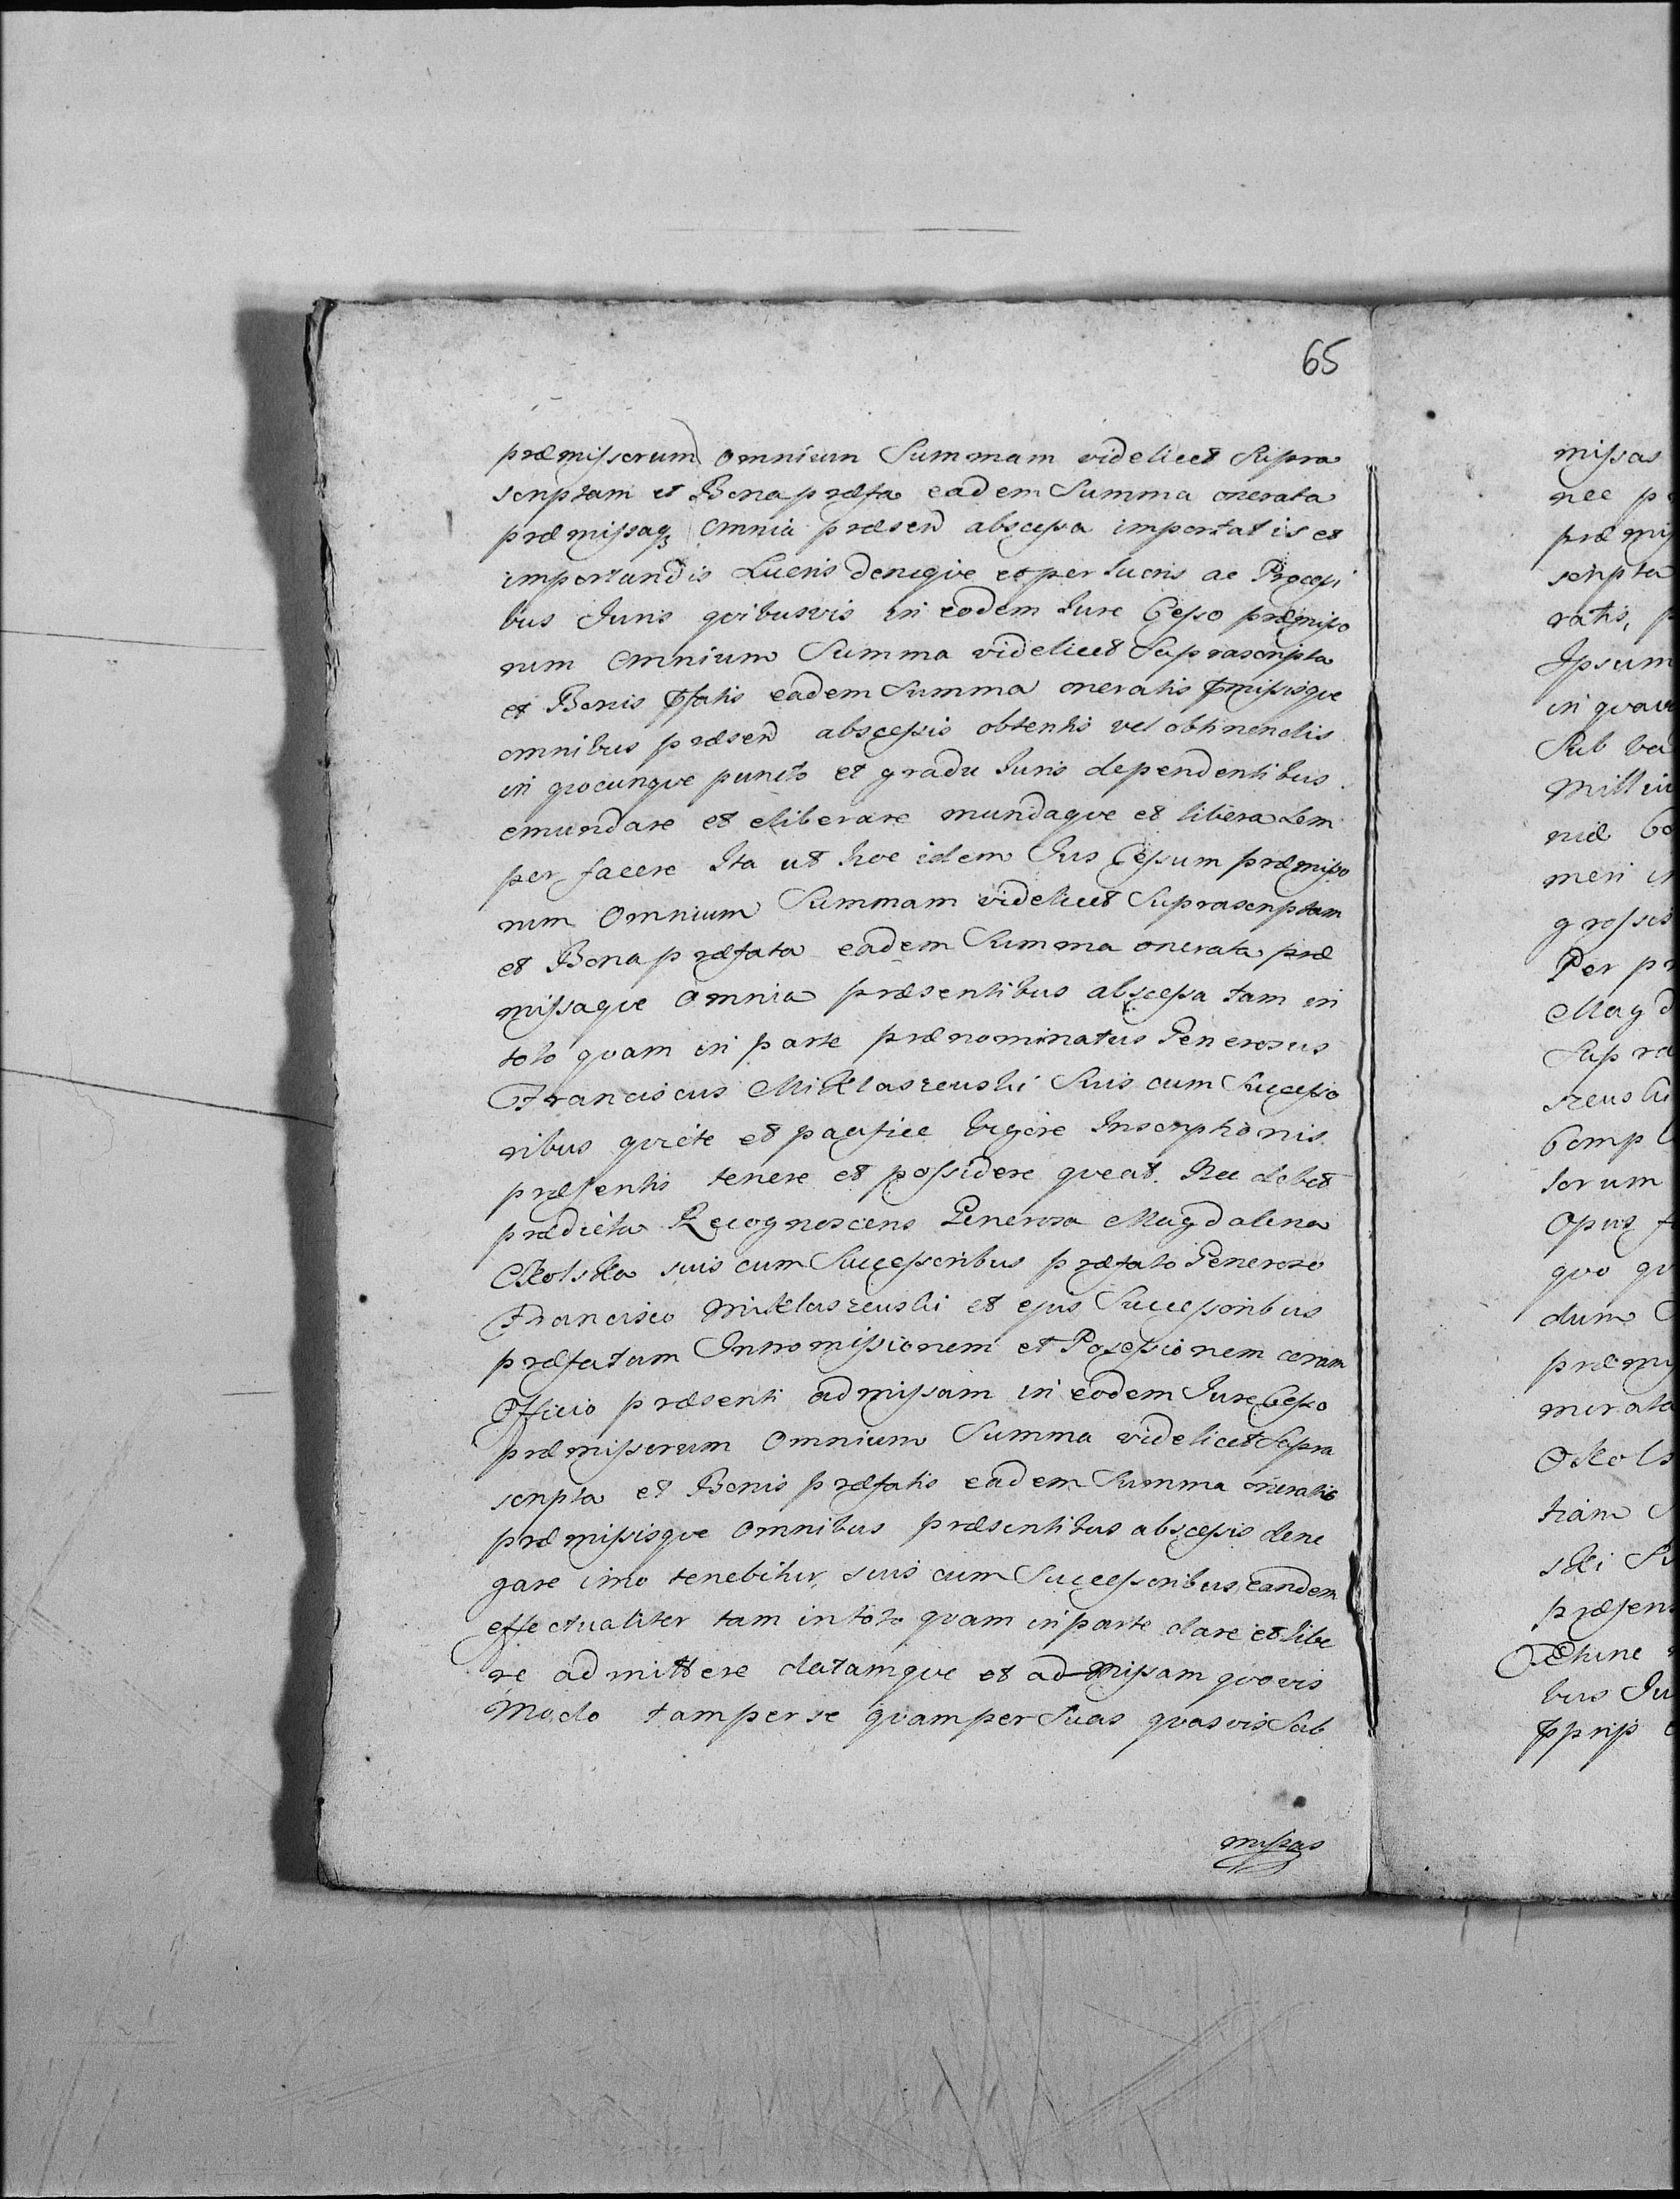 65
præmissorum omnium Summam videlicet Supra
scriptam et Bona præfta eadem Summa onerata
præmissaq3 omnia præsen abscessa importatis et
importandis Lucris deniqve et per lucris ac Processi
bus Juris qvibusvis in eodem Jure Cesso præmisso
rum omnium Summa videlicet Suprascripta
et Bonis pfatis eadem Summa oneratis pmissisqve
omnibus præsen abscessis obtentis vel obtinendis
in qvocunqve puncto et gradu Juris dependentibus
emundare et eliberare mundaqve et libera Sem
per facere Ita ut hoc idem Jus Cessum præmisso
rum Omnium Summam videlicet Suprascriptam
et Bona præfata eadem Summa onerata præ
missaqve omnia præsentibus abscessa tam in
toto qvam in parte prænominatus Generosus
Franciscus Miklaszeuski Suis cum Successo
ribus qviete et pacifice Vigore Inscriptionis
præsentis tenere et possidere qveat. Nec debet
prædicta Recognoscens Generosa Magdalena
Skolska suis cum Successoribus præfato Generoso
Francisco Miklaszeuski et ejus Successoribus
præfatam Intromissionem et Possessionem coram
Officio præsenti admissam in eodem Jure Cesso
præmissorum omnium Summa videlicet Supra
scripta et Bonis præfatis eadem Summa oneratis
præmissisqve omnibus præsentibus abscessis dene
gare imo tenebitur, suis cum Successoribus, eandem
effectualiter tam in toto qvam in parte dare et libe
re admittere datamqve et admissam qvovis
Modo tam per se qvam per Suas qvasvis Sub
missas
missas
nec
præmis
scripta
ratis,
Ipsum
in qvavi
Sub
Milliu
niæ Co
meri in
grossis
Per pr
Magd
Supra
szeuski
Compl
sorum
opus
qvo qv
dum
præmis
merata
Skols
tiam
ski Su
præsen
bus Ju